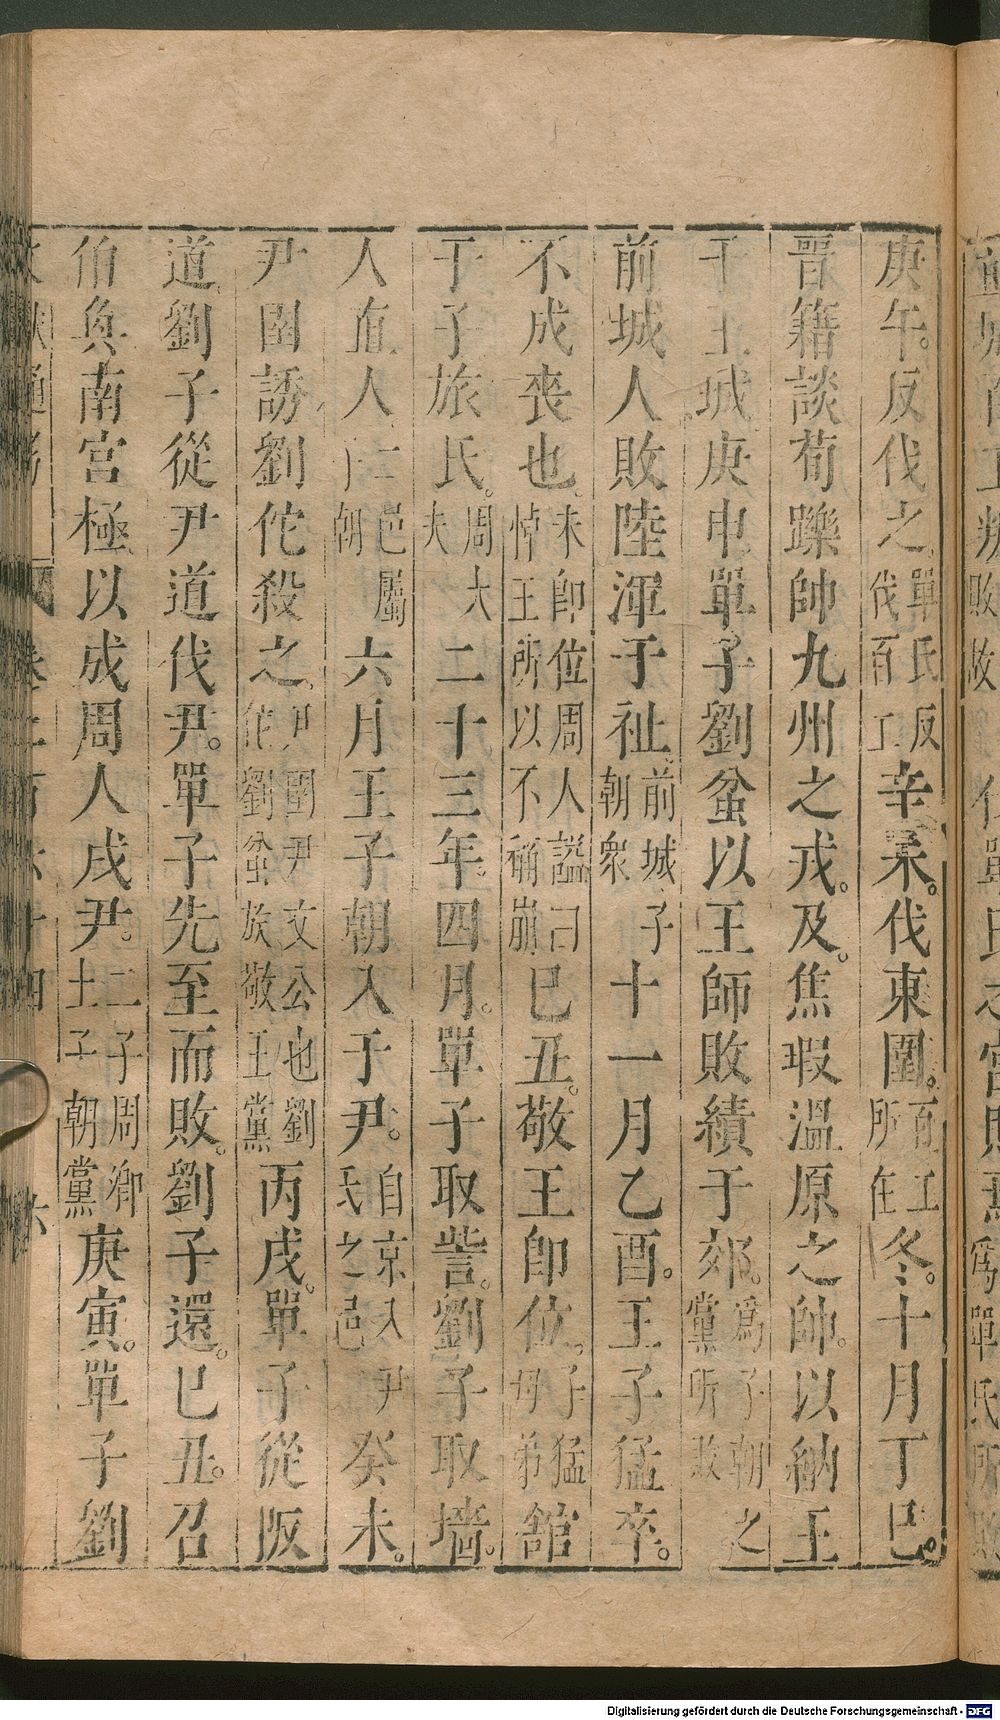 庚午。反伐之。單氏反伐百工辛未。伐東圉。百工所在冬。十月丁巳。
晉籍談荀躒帥九州之戎。及。焦瑕溫原之帥。以納王
于王城。庚申單子劉蚠以王師敗績于郊。爲子朝之黨所敗
前城人敗陸渾于社。前城子朝衆十一月乙酉。王子猛卒。
不成喪也。未卽位周人諡曰悼王所以不稱崩巳丑。敬王卽位。子猛母弟館
于子旅氏。周大夫二十三年。四月。單子取訾。劉子取墻。
人直人二邑屬朝六月王子朝入于尹。自京入尹氏之邑癸未。
尹圉誘劉佗殺之。尹圉尹文公也劉佗劉蚠族敬王黨丙戌。單子從阪
道劉子從尹道伐尹。單子先至而敗。劉子還。巳丑。召
伯奐南宮極以成周人戍尹。二子周卿士子朝黨庚寅。單子劉
Digitalisierung gefördert durch die Deutsche Forschungsgemeinschaft - DFG